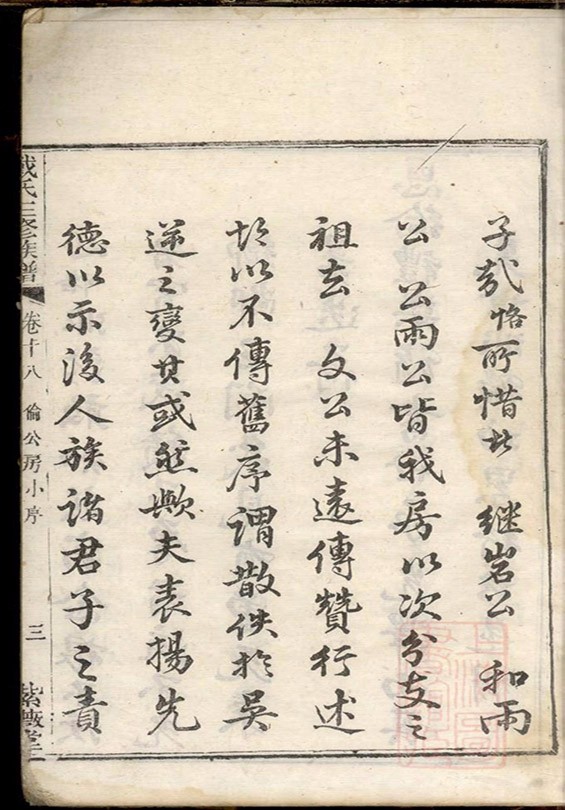 子哉恪所惜者 继岩公 和雨
公 公兩公皆我房以次分支之
祖去 文公未遠傳贊行述
胡以不傳舊序謂散佚於吳
逆之變其或然歟夫表揚先
德以示後人族諸君子之責
戴氏三修族譜 卷十八 倫公房小序 三